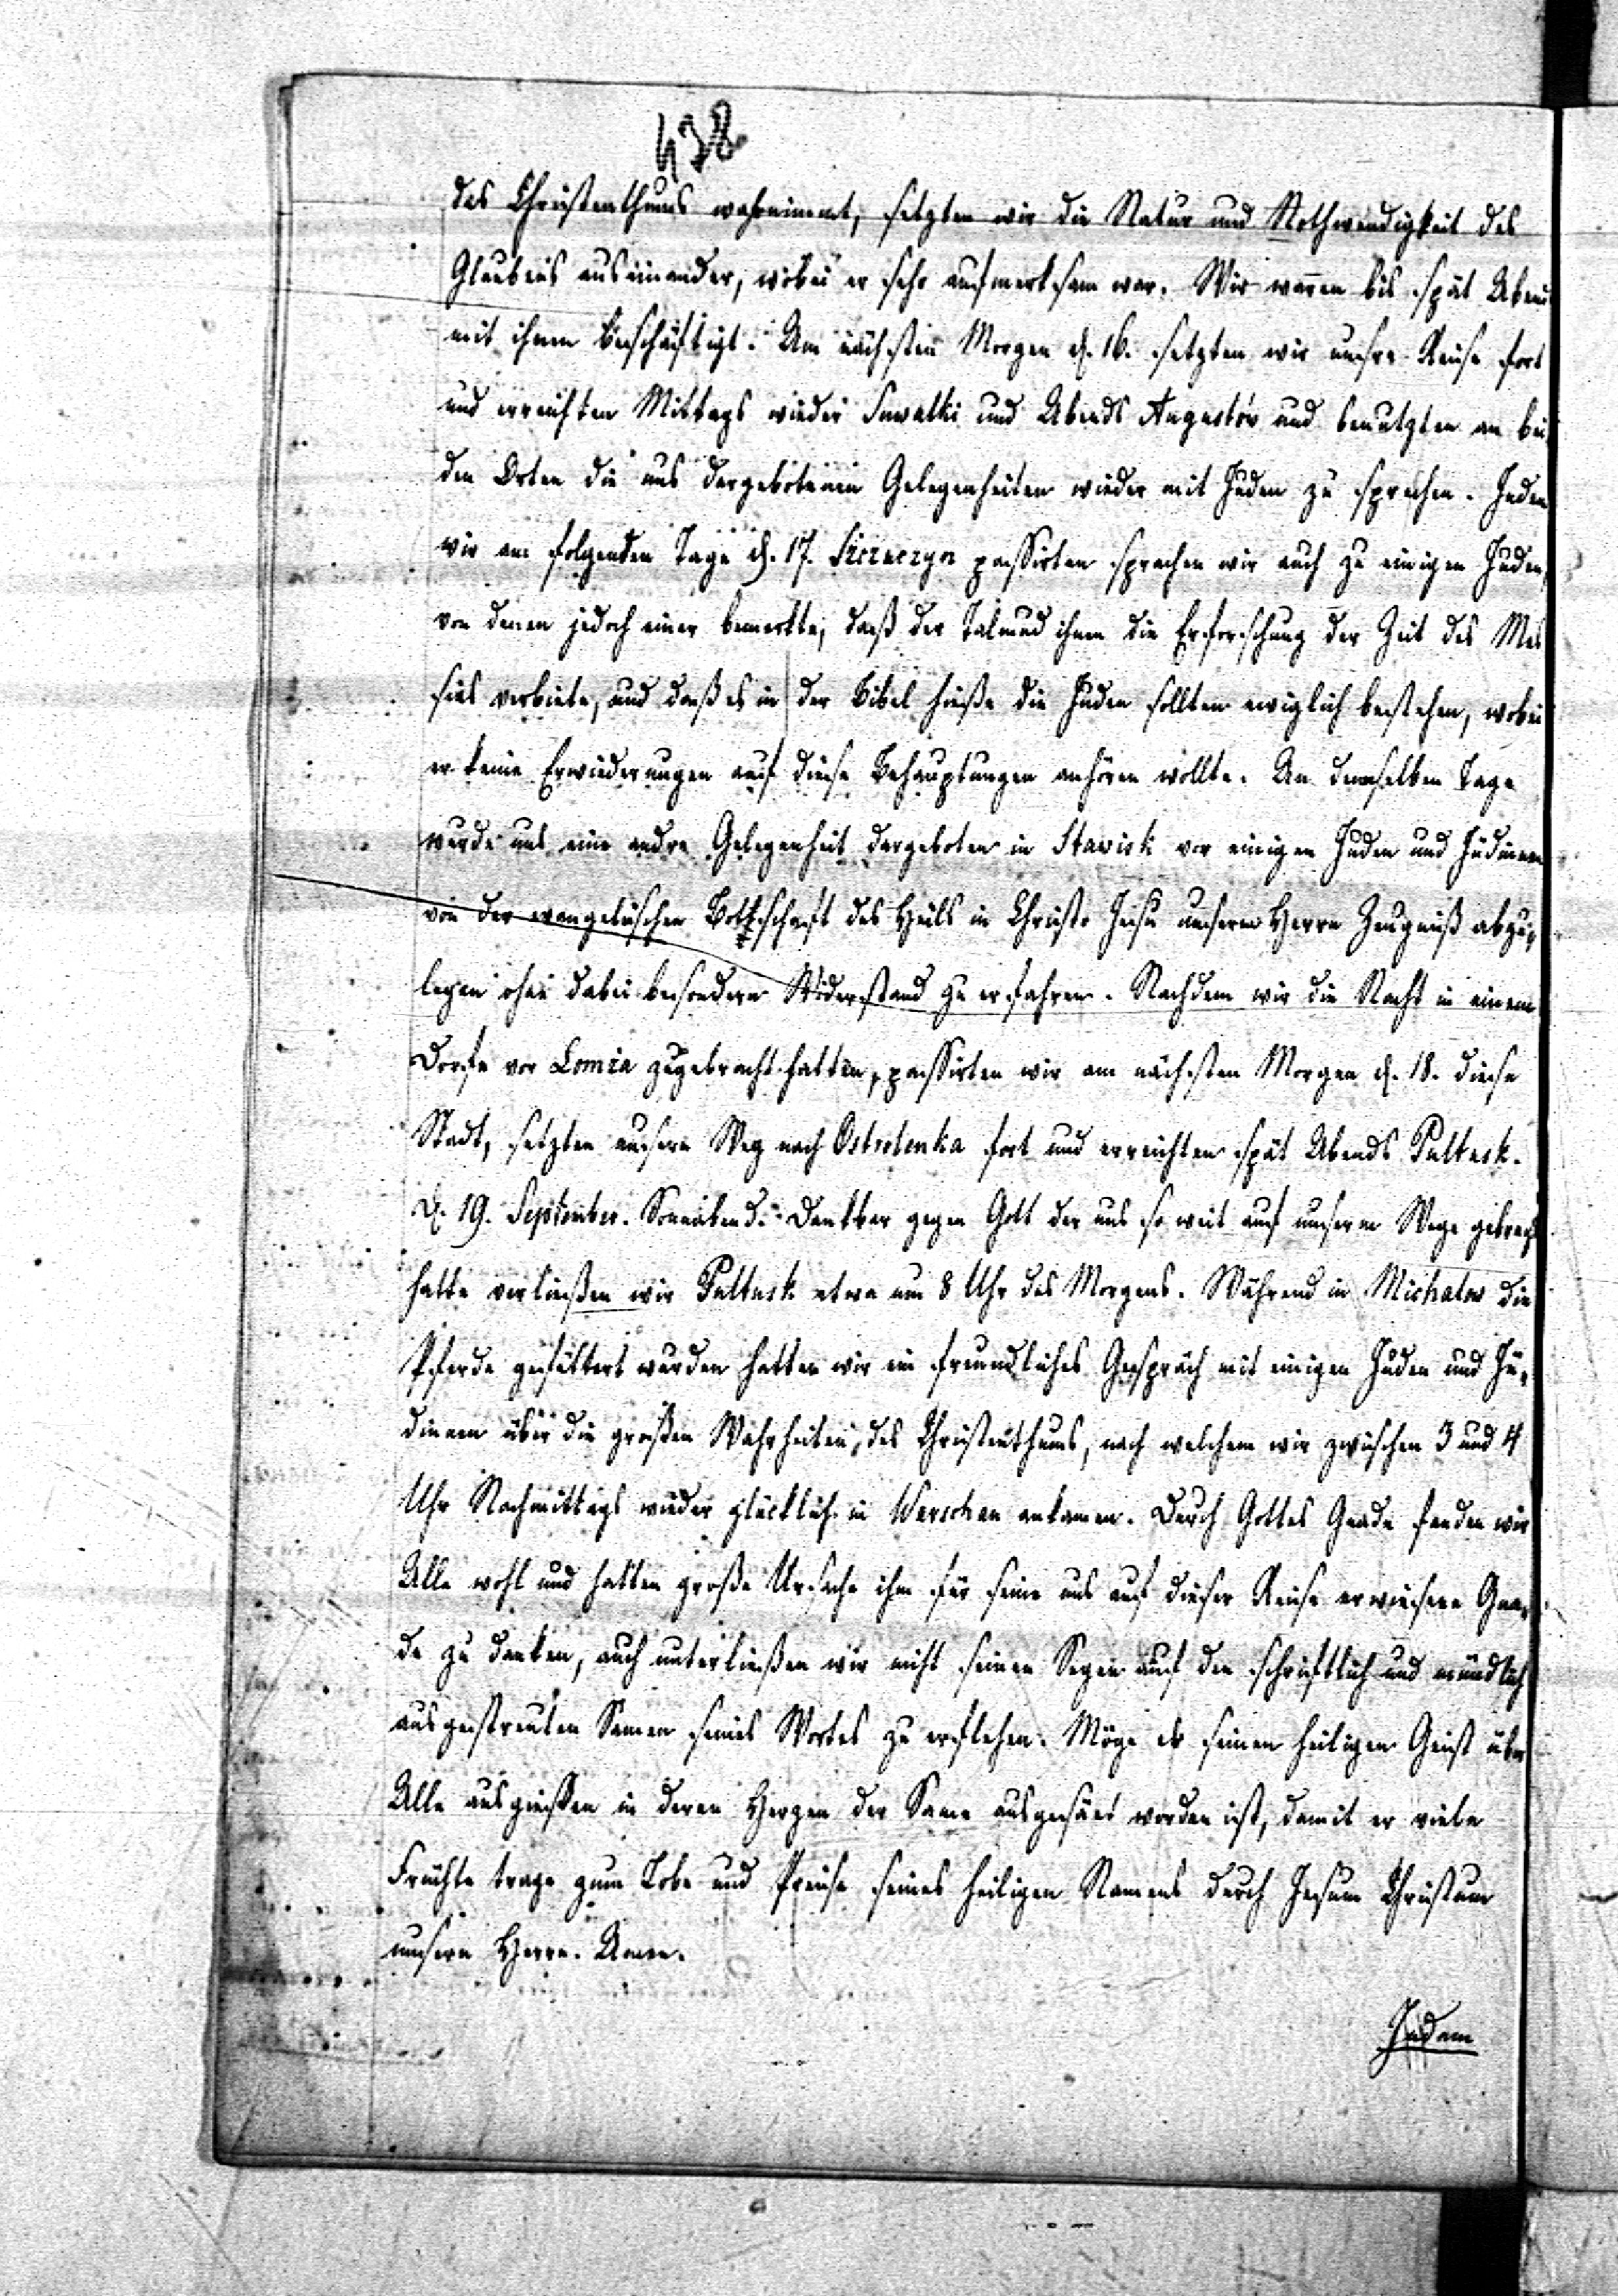 438
des Christenthums wahrnimmt, setzten wir die Natur und Nothwendigkeit des
Glaubens auseinander, wobei er sehr aufmerksam war. Wir waren bis spät Abend
mit ihnen beschäftigt. Am nächsten Morgen d. 16. setzten wir unsre Reise fort
und erreichten Mittags wieder Suwalki und Abends Augustów und benutzten an bei
den Orten die uns dargebotenen Gelegenheiten wieder mit Juden zu sprechen. Indem
wir am folgenden Tage d. 17. Szczuczyn passirten sprachen wir auch zu einigen Juden,
von denen jedoch einer bemerkte, daß der Talmud ihnen die Erforschung der Zeit des Mes
sias verbiete, und daß es in der Bibel hieße die Juden sollten ewiglich bestehen, wobei
er keine Erwiederungen auf diese Behauptungen anhören wollte. An demselben Tage
wurde uns eine andre Gelegenheit dargeboten in Stawisk vor einigen Juden und Jüdinnen
von der evangelischen Bothschaft des Heils in Christo Jesu unserm Herrn Zeugniß abzu,
legen ohne dabei besondern Widerstand zu erfahren. Nachdem wir die Nacht in einem
Dorfe vor Lomza zugebracht hatten, passirten wir am nächsten Morgen d. 18. diese
Stadt, setzten unsern Weg nach Ostrolenka fort und erreichten spät Abends Pultusk.
D. 19. September. Sonnabend. Dankbar gegen Gott der uns so weit auf unserm Wege gebracht
hatte verließen wir Pultusk etwa um 8 Uhr des Morgens. Während in Michalow die
Pferde gefüttert wurden hatten wir ein freundliches Gespräch mit einigen Juden und Jü,
dinnen über die großen Wahrheiten des Christenthums, nach welchem wir zwischen 3 und 4
Uhr Nachmittags wieder glücklich in Warschau ankamen. Durch Gottes Gnade fanden wir
Alle wohl und hatten große Ursache ihm für seine uns auf dieser Reise erwiesene Gna,
de zu danken, auch unterließen wir nicht seinen Segen auf den schriftlich und mündlich
ausgestreuten Samen seines Wortes zu erflehen. Möge er seinen heiligen Geist über
Alle ausgießen in deren Herzen der Same ausgesäet worden ist, damit er viele
Früchte trage zum Lobe und Preise seines heiligen Namens durch Jesum Christum
unsern Herrn. Amen.
Indem